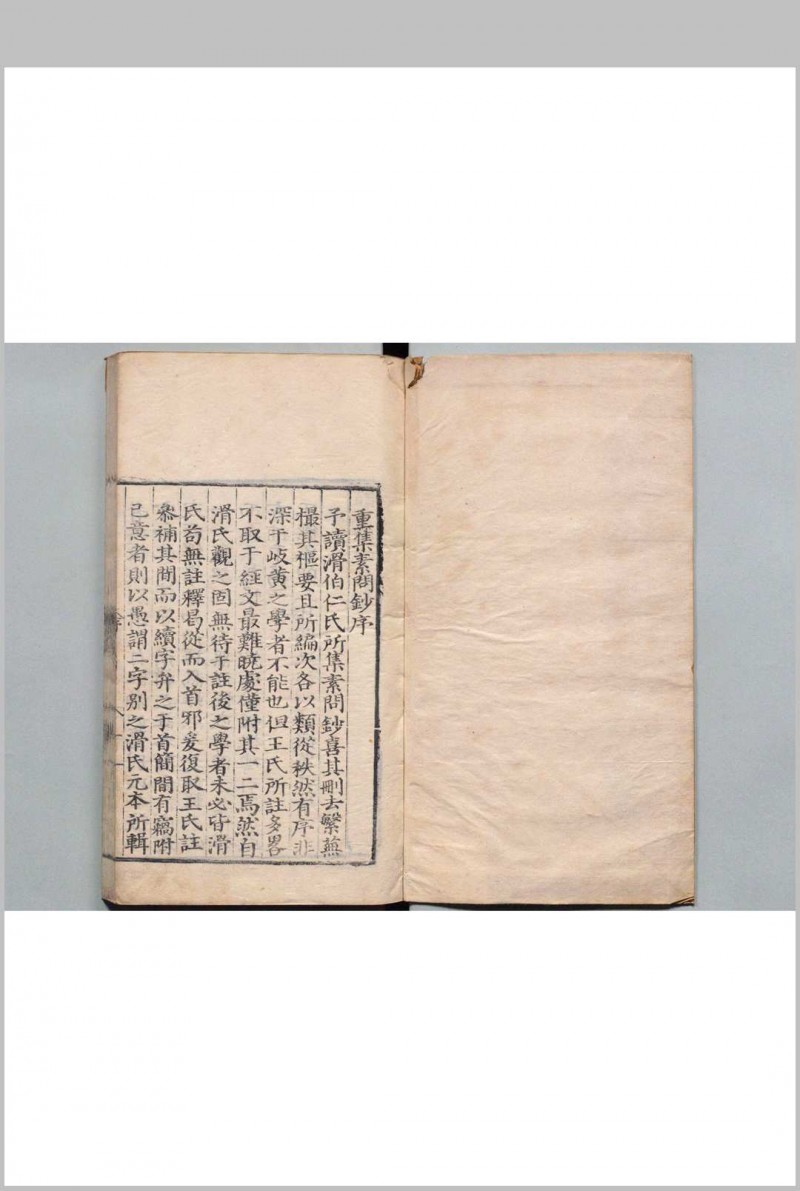 重集素問鈔序
予讀滑伯仁氏所集素問鈔喜其刪去繁蕪
撮其樞要且所編次各以類從秩然有序非
深于岐黃之學者不能也但王氏所註多畧
不取于經文最難曉處僅附其一二焉然自
滑氏觀之固無待于註後之學者未必皆滑
氏苟無註釋曷從而入首邪爰復取王氏註
參補其間而以續字弁之于首簡間有竊附
己意者則以愚謂二字别之滑氏元本所輯